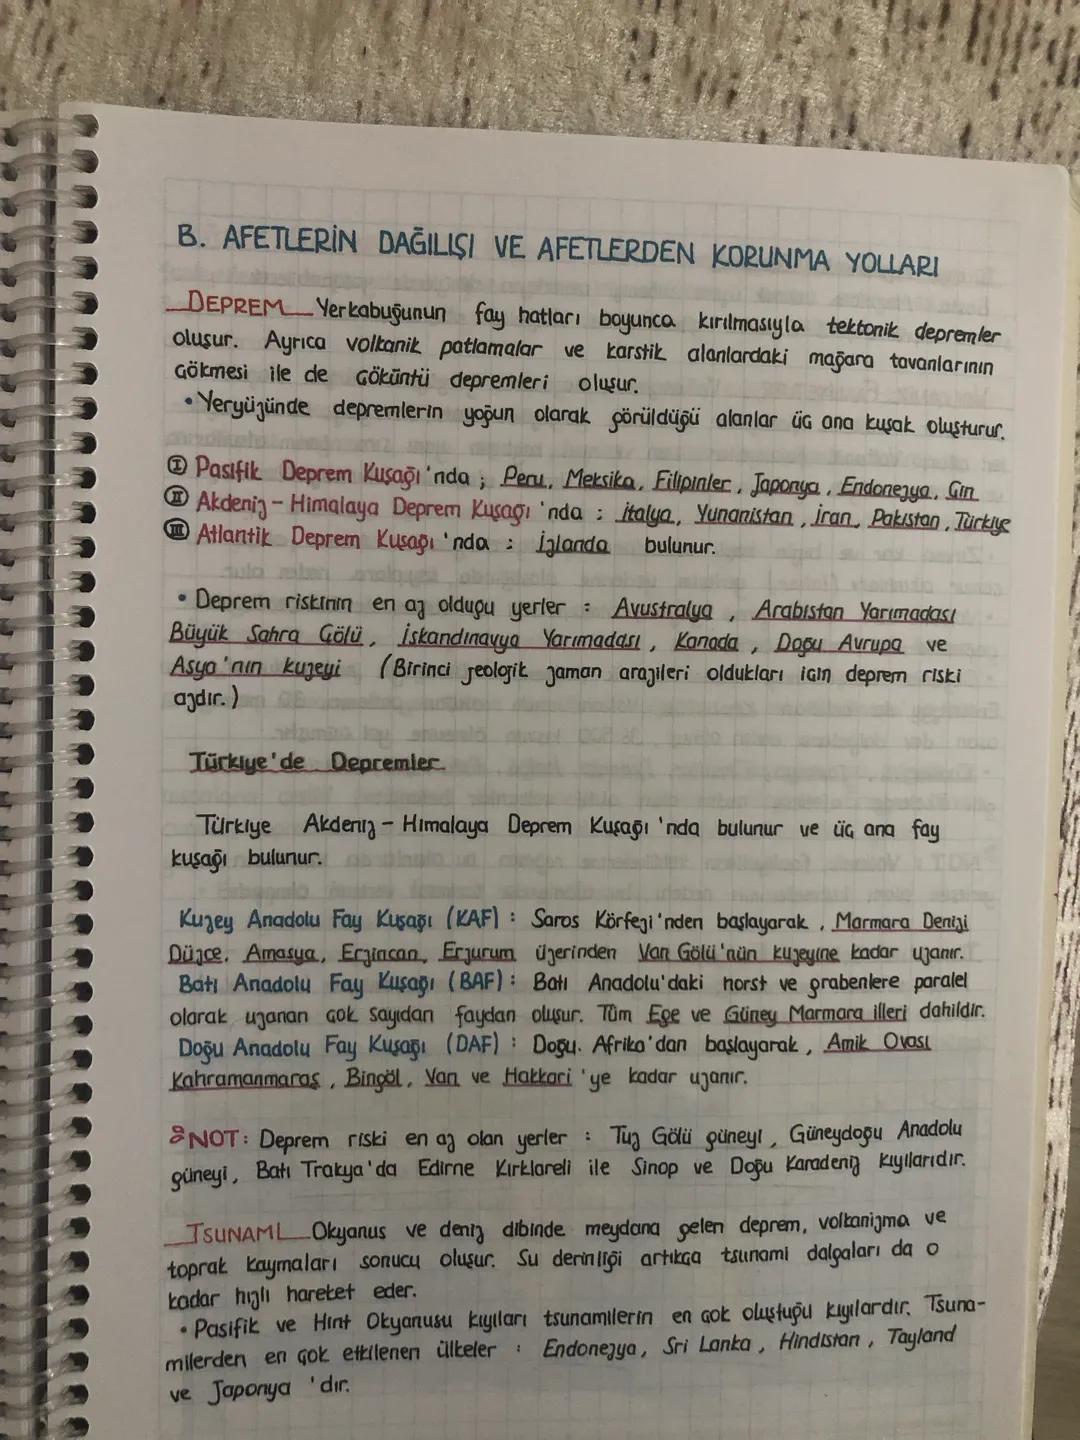 B. AFETLERİN DAĞILIŞI VE AFETLERDEN KORUNMA YOLLARI
DEPREM Yerkabuğunun fay hatları boyunca kırılmasıyla tektonik depremler
oluşur. Ayrıca volkanik patlamalar ve karstik alanlardaki mağara tavanlarının
çökmesi ile de çöküntü depremleri oluşur.
• Yeryüzünde depremlerin yoğun olarak görüldüğü alanlar üç ana kuşak oluşturur.
I Pasifik Deprem Kuşağı'nda ; Peru, Meksika, Filipinler, Japonya, Endonezya, Çin
II Akdeniz - Himalaya Deprem Kuşağı 'nda : İtalya, Yunanistan, İran, Pakistan, Türkiye
III Atlantik Deprem Kuşağı 'nda : İzlanda bulunur.
• Deprem riskinin en az olduğu yerler : Avustralya, Arabistan Yarımadası
Büyük Sahra Çölü, İskandinavya Yarımadası, Kanada, Doğu Avrupa ve
Asya'nın kuzeyi (Birinci jeolojik zaman arazileri oldukları için deprem riski
azdır.)
Türkiye'de Depremler
Türkiye Akdeniz - Himalaya Deprem Kuşağı 'nda bulunur ve üç ana fay
kuşağı bulunur.
Kuzey Anadolu Fay Kuşağı (KAF) : Saros Körfezi'nden başlayarak, Marmara Denizi
Düzce, Amasya, Erzincan, Erzurum üzerinden Van Gölü'nün kuzeyine kadar uzanır.
Batı Anadolu Fay Kuşağı (BAF) : Batı Anadolu'daki horst ve grabenlere paralel
olarak uzanan çok sayıdan faydan oluşur. Tüm Ege ve Güney Marmara illeri dahildir.
Doğu Anadolu Fay Kuşağı (DAF) : Doğu. Afrika'dan başlayarak, Amik Ovası
Kahramanmaraş, Bingöl, Van ve Hakkari 'ye kadar uzanır.
NOT: Deprem riski en az olan yerler : Tuz Gölü güneyi, Güneydoğu Anadolu
güneyi, Batı Trakya'da Edirne Kırklareli ile Sinop ve Doğu Karadeniz kıyılarıdır.
TSUNAMİ Okyanus ve deniz dibinde meydana gelen deprem, volkanizma ve
toprak kaymaları sonucu oluşur. Su derinliği artıkça tsunami dalgaları da o
kadar hızlı hareket eder.
• Pasifik ve Hint Okyanusu kıyıları tsunamilerin en çok oluştuğu kıyılardır. Tsuna-
milerden en çok etkilenen ülkeler : Endonezya, Sri Lanka, Hindistan, Tayland
ve Japonya 'dır.